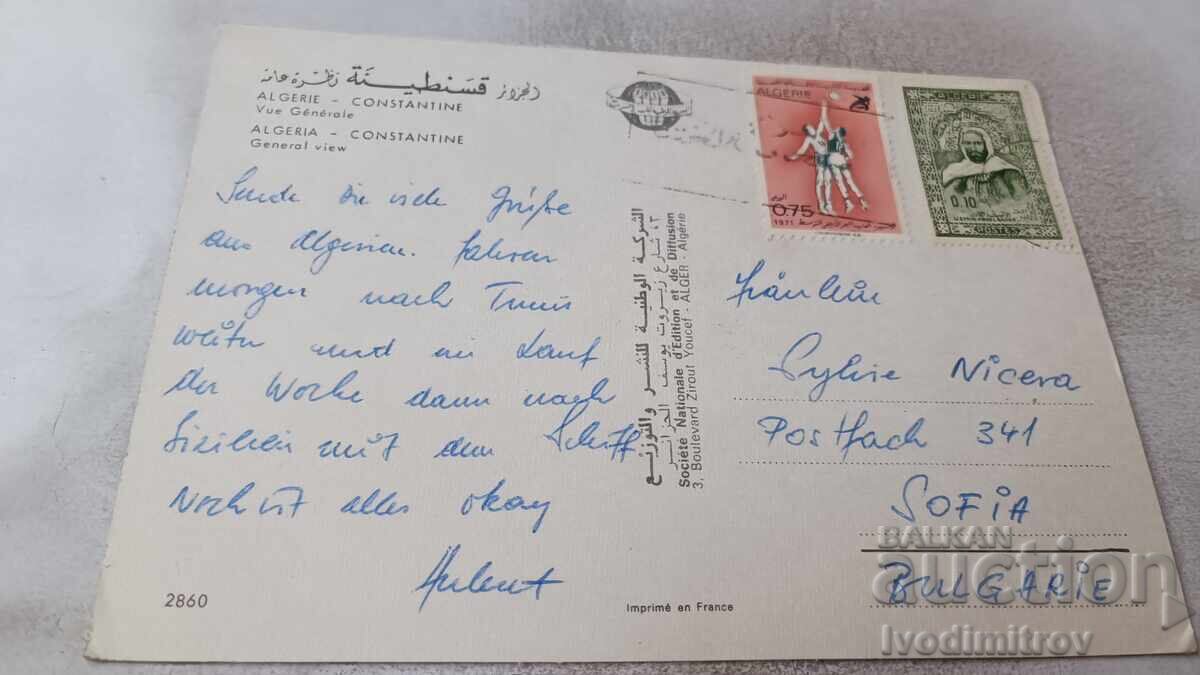 الجزائر قسنطينة نظرة عامة
ALGERIE - CONSTANTINE
Vue Générale
ALGERIA - CONSTANTINE
General view
Sende Dir viele Grüße
aus Algerien. Fahren
morgen nach Tunis
weiter und im Lauf
der Woche dann nach
Sizilien mit dem Schiff
Noch ist alles okay
Hubert
2860
الشركة الوطنية للنشر والتوزيع
٣ شارع زيروت يوسف الجزائر
Société Nationale d'Edition et de Diffusion
3, Boulevard Zirout Youcef - ALGER - Algérie
Imprimé en France
ALGERIE
0.75
1971
0.10
POSTES
Fräulein
Sylvie Nicova
Postfach 341
SOFIA
BULGARIE
BALKAN
auction
Ivodimitrov